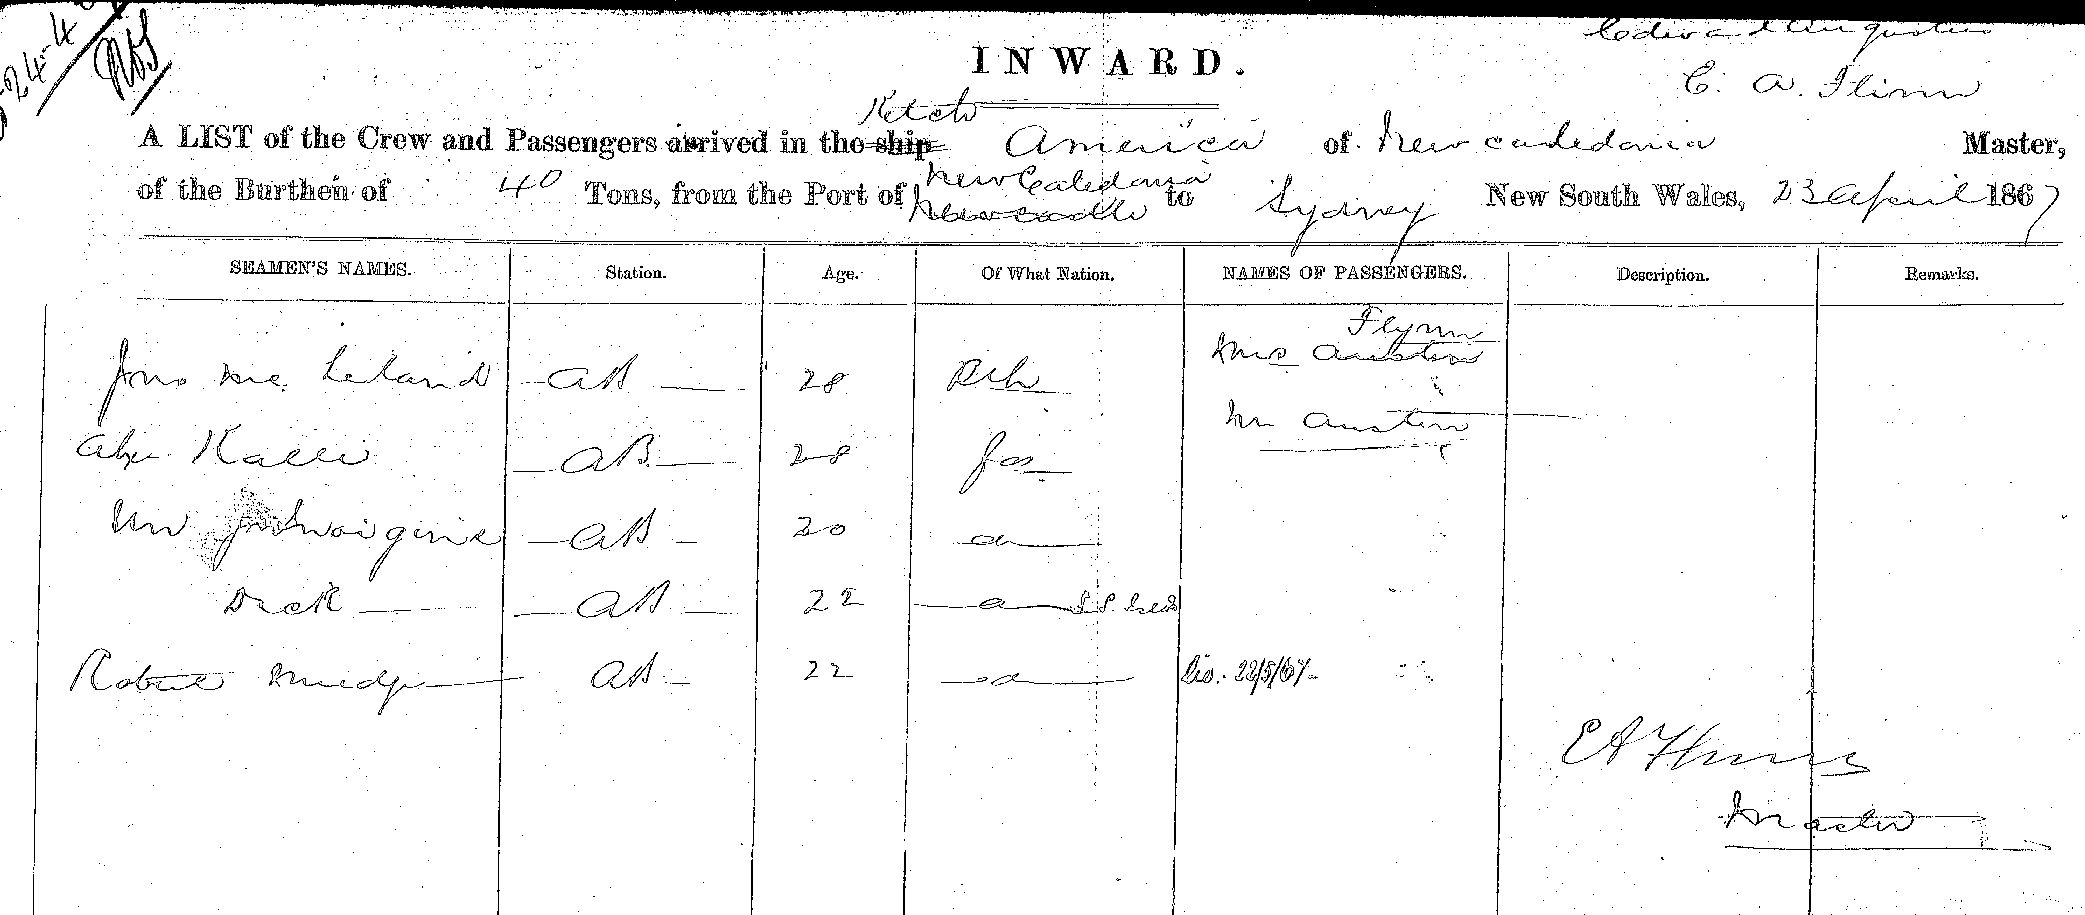 24-4
INWARD.
Edward Augustus
E. A. Flinn
Ketch
A LIST of the Crew and Passengers arrived in the ship America of New Caledonia Master,
New Caledonia
of the Burthen of 40 Tons, from the Port of Newcastle to Sydney New South Wales, 23 April 1867
SEAMEN'S NAMES. Station. Age. Of What Nation. NAMES OF PASSENGERS. Description. Remarks.
Flynn
Mrs Austin
Jno Mc Leland AB 28
Mr Austin
Alex AB 28
Wm AB 20
Dick AB 22
Robert Mudge AB 22 Dis. 22/5/67
EA Flinn
Master